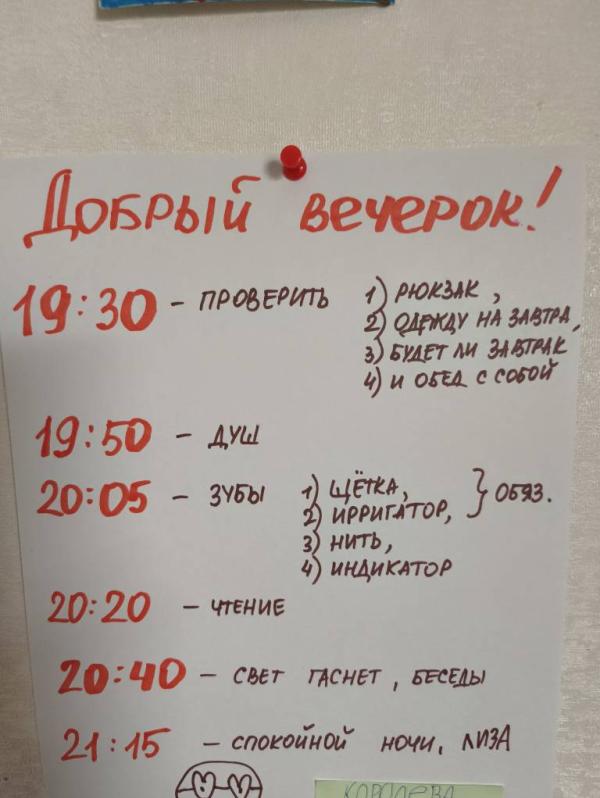 Добрый вечерок!
19:30 - ПРОВЕРИТЬ 1) РЮКЗАК,
2) ОДЕЖДУ НА ЗАВТРА,
3) БУДЕТ ЛИ ЗАВТРАК
4) И ОБЕД С СОБОЙ
19:50 - ДУШ
20:05 - ЗУБЫ 1) ЩЁТКА,
2) ИРРИГАТОР, } ОБЯЗ.
3) НИТЬ,
4) ИНДИКАТОР
20:20 - ЧТЕНИЕ
20:40 - СВЕТ ГАСНЕТ, БЕСЕДЫ
21:15 - СПОКОЙНОЙ НОЧИ, ЛИЗА
КОРОЛЕВА